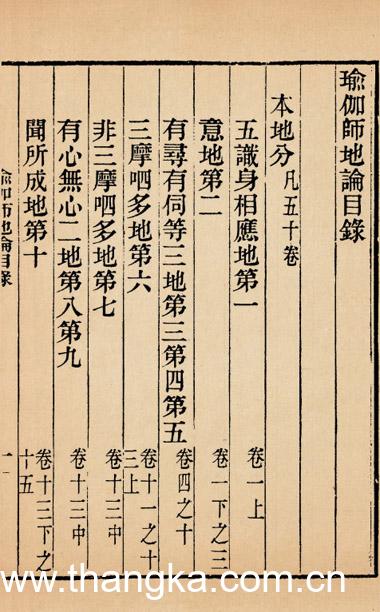 瑜伽師地論目錄
本地分凡五十卷
五識身相應地第一 卷一上
意地第二 卷一下之三
有尋有伺等三地第三第四第五 卷四之十
三摩呬多地第六 卷十一之十三上
非三摩呬多地第七 卷十三中
有心無心二地第八第九 卷十三中
聞所成地第十 卷十三下之十五
瑜伽師地論目錄 一
www.thangka.com.cn